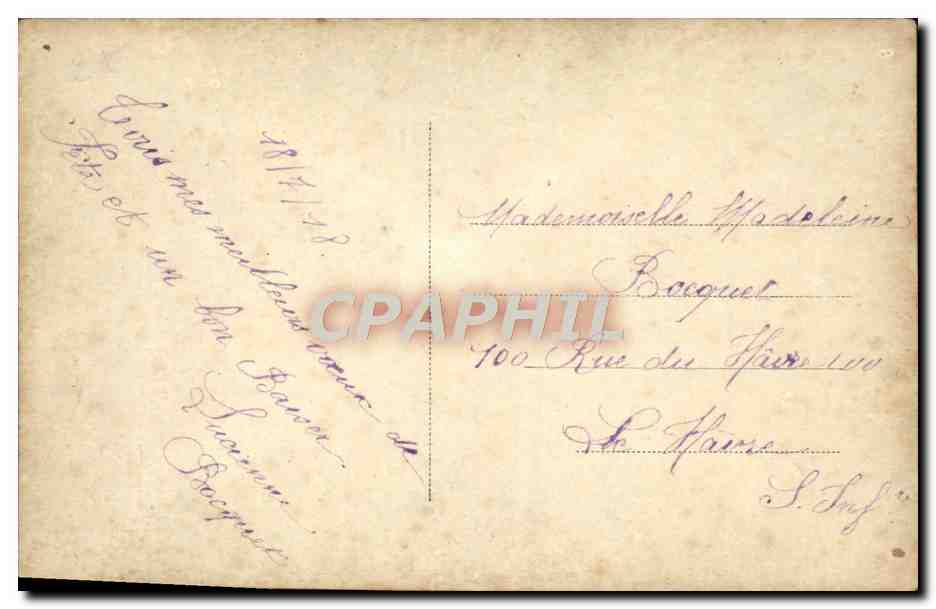 18/7/18
Tous mes meilleurs vœux de
fête et un bon Baiser
Lucienne
Bocquet
Mademoiselle Madeleine
Bocquet
100 Rue du Hâvre 100
Le Hâvre
S. Inf re
CPAPHIL